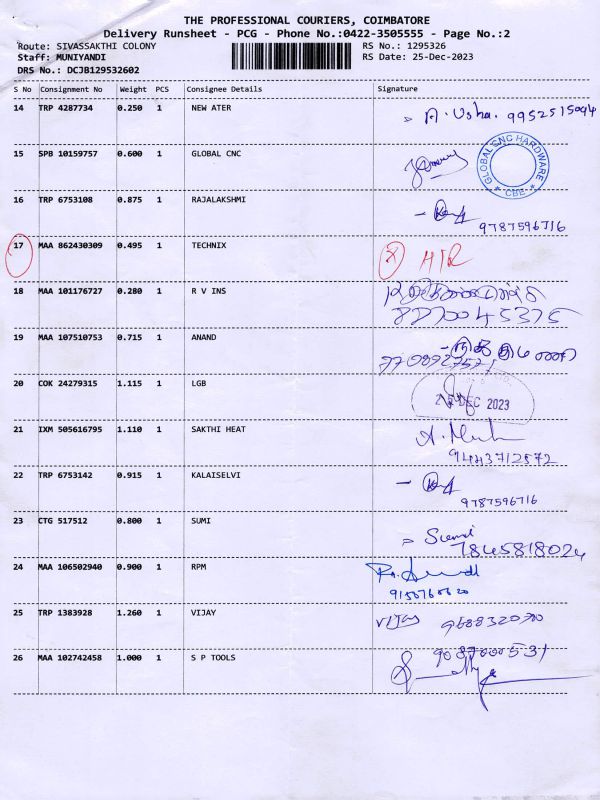 THE PROFESSIONAL COURIERS, COIMBATORE
Delivery Runsheet - PCG - Phone No.:0422-3505555 - Page No.:2
Route: SIVASSAKTHI COLONY RS No.: 1295326
Staff: MUNIYANDI RS Date: 25-Dec-2023
DRS No.: DCJB129532602
S No Consignment No Weight PCS Consignee Details Signature
14 TRP 4287734 0.250 1 NEW ATER A. Usha. 9952515094
15 SPB 10159757 0.600 1 GLOBAL CNC
GLOBAL CNC HARDWARE
CBE
16 TRP 6753108 0.875 1 RAJALAKSHMI
9787596716
17 MAA 862430309 0.495 1 TECHNIX
18 MAA 101176727 0.280 1 R V INS
8270045375
19 MAA 107510753 0.715 1 ANAND
20 COK 24279315 1.115 1 LGB
DEC 2023
21 IXM 505616795 1.110 1 SAKTHI HEAT
9443712572
22 TRP 6753142 0.915 1 KALAISELVI
9787596716
23 CTG 517512 0.800 1 SUMI
7845818024
24 MAA 106502940 0.900 1 RPM
25 TRP 1383928 1.260 1 VIJAY VIJAY
26 MAA 102742458 1.000 1 S P TOOLS 9087000531